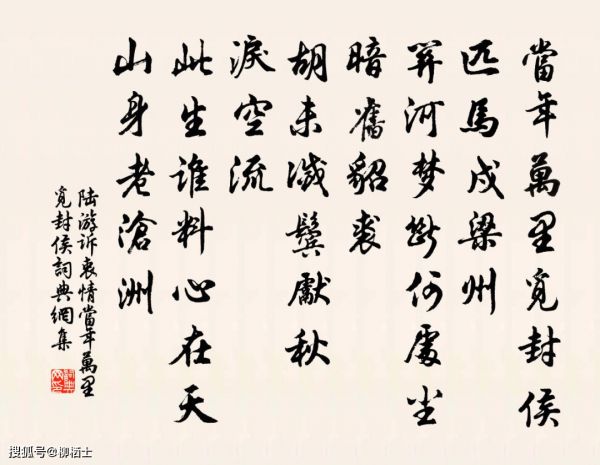 當年萬里覓封侯
匹馬戍梁州
關河梦斷何處尘
暗舊貂裘
胡未滅鬢獻秋
淚空流
此生誰料心在天
山身老滄洲
陸游诉衷情當年萬里
覓封侯詞典網集
搜狐号@柳栖士